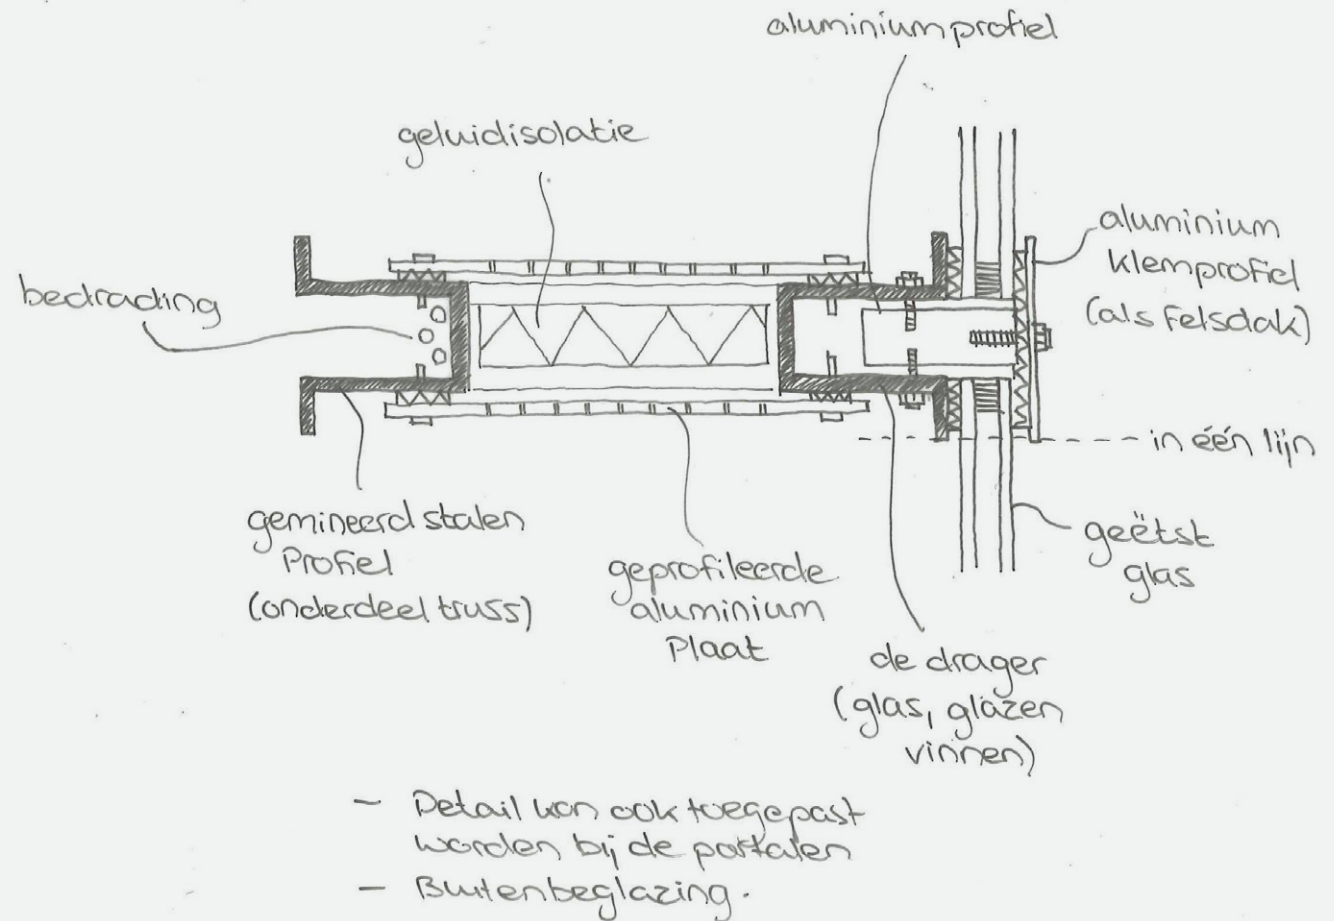 aluminiumprofiel
geluidisolatie
aluminium
klemprofiel
(als felsdak)
bedrading
in één lijn
gemineerd stalen
Profiel
(onderdeel truss)
geprofileerde
aluminium
Plaat
geëtst
glas
de drager
(glas, glazen
vinnen)
- Detail kan ook toegepast
worden bij de portalen
- Buitenbeglazing.